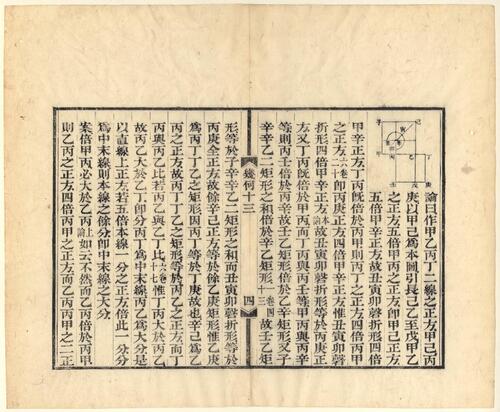 論曰作甲乙丙丁二線之正方甲己丙
庚以甲己為本圖引長己乙至戊甲乙
之正方五倍甲丙之正方卽甲己正方
五倍甲辛正方故丑寅卯磬折形四倍
甲辛正方丁丙既倍於丙甲則丙丁之正方四倍丙甲
之正方六卷二十卽丙庚正方四倍甲辛正方惟丑寅卯磬
折形四倍甲辛正方本論故丑寅卯磬折形等於丙庚正
方又丁丙既倍於甲丙而丁丙與丙壬等甲丙與丙辛
等則丙壬倍於丙辛故壬乙矩形倍於乙辛矩形又子
辛辛乙二矩形之和倍於辛乙矩形一卷四十三故壬乙矩
幾何十三
四
形等於子辛辛乙二矩形之和而丑寅卯磬折形等於
丙庚全正方故餘辛己正方等於餘乙庚矩形惟乙庚
為丙丁丁乙之矩形因丙丁等於丁庚故也辛己為乙
丙之正方故丙丁丁乙之矩形等於丙乙之正方而丁
丙與丙乙比若丙乙與乙丁比六卷十七惟丁丙大於丙乙
故丙乙大於乙丁卽分丙丁為中末線丙乙為大分是
以直線上正方若五倍本線一分之正方倍此一分分
為中末線則本線之餘分卽中末線之大分
案倍甲丙必大於乙丙上論如云不然而乙丙倍於丙甲
則乙丙之正方四倍丙甲之正方而乙丙丙甲之二正